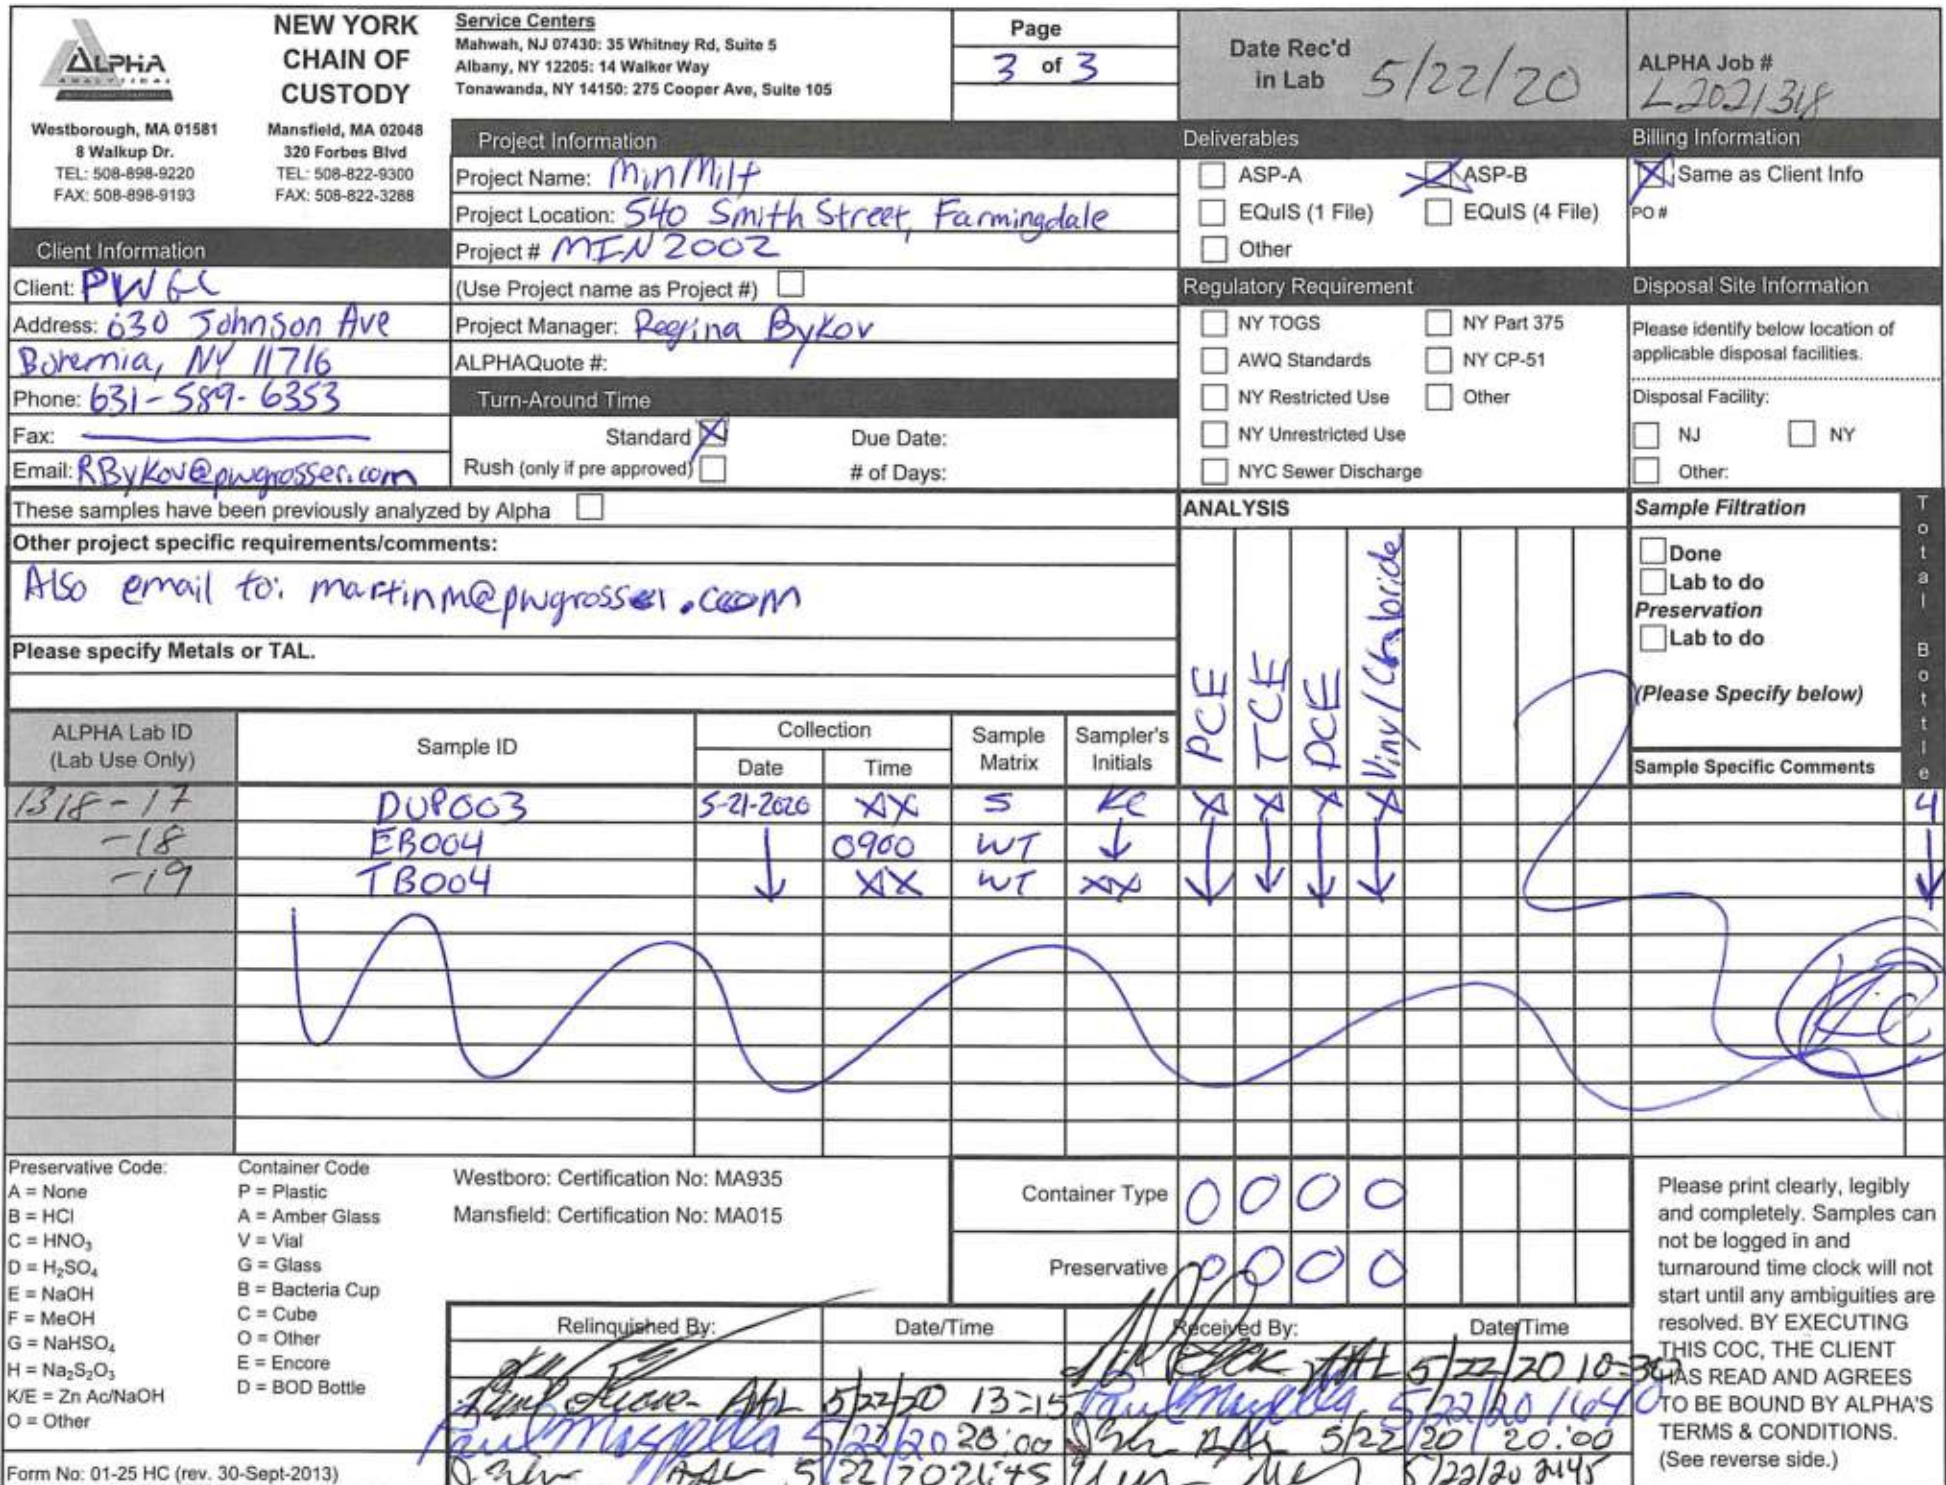 ALPHA
ANALYTICAL
Westborough, MA 01581
8 Walkup Dr.
TEL: 508-898-9220
FAX: 508-898-9193
NEW YORK
CHAIN OF
CUSTODY
Mansfield, MA 02048
320 Forbes Blvd
TEL: 508-822-9300
FAX: 508-822-3288
Service Centers
Mahwah, NJ 07430: 35 Whitney Rd, Suite 5
Albany, NY 12205: 14 Walker Way
Tonawanda, NY 14150: 275 Cooper Ave, Suite 105
Page
3 of 3
Date Rec'd
in Lab 5/22/20
ALPHA Job #
L2021318
Project Information
Project Name: MinMilt
Project Location: 540 Smith Street, Farmingdale
Project # MIN2002
(Use Project name as Project #)
Project Manager: Regina Bykov
ALPHAQuote #:
Deliverables
ASP-A
ASP-B
EQuIS (1 File)
EQuIS (4 File)
Other
Billing Information
Same as Client Info
PO #
Client Information
Client: PWGC
Address: 630 Johnson Ave
Bohemia, NY 11716
Phone: 631-589-6353
Fax:
Email: RBykov@pwgrosser.com
Turn-Around Time
Standard
Due Date:
Rush (only if pre approved)
# of Days:
Regulatory Requirement
NY TOGS
NY Part 375
AWQ Standards
NY CP-51
NY Restricted Use
Other
NY Unrestricted Use
NYC Sewer Discharge
Disposal Site Information
Please identify below location of
applicable disposal facilities.
Disposal Facility:
NJ
NY
Other:
These samples have been previously analyzed by Alpha
Other project specific requirements/comments:
Also email to: martinm@pwgrosser.com
Please specify Metals or TAL.
ANALYSIS
PCE
TCE
DCE
Vinyl Chloride
Sample Filtration
Done
Lab to do
Preservation
Lab to do
(Please Specify below)
Total Bottle
ALPHA Lab ID
(Lab Use Only)
Sample ID
Collection
Date
Time
Sample
Matrix
Sampler's
Initials
Sample Specific Comments
1318-17 DUP003 5-21-2020 XX S KC X X X X 4
-18 EB004 0900 WT
-19 TB004 XX WT XX
KC
Preservative Code:
A = None
B = HCl
C = HNO₃
D = H₂SO₄
E = NaOH
F = MeOH
G = NaHSO₄
H = Na₂S₂O₃
K/E = Zn Ac/NaOH
O = Other
Container Code
P = Plastic
A = Amber Glass
V = Vial
G = Glass
B = Bacteria Cup
C = Cube
O = Other
E = Encore
D = BOD Bottle
Westboro: Certification No: MA935
Mansfield: Certification No: MA015
Container Type O O O O
Preservative O O O O
Relinquished By:
Date/Time
Received By:
Date/Time
AAL 5/22/20 10:30
AAL 5/22/20 13:15 Paul Mazzella 5/22/20 1640
Paul Mazzella 5/22/20 20:00 AAL 5/22/20 20:00
AAL 5/22/20 21:45 5/22/20 2145
Please print clearly, legibly
and completely. Samples can
not be logged in and
turnaround time clock will not
start until any ambiguities are
resolved. BY EXECUTING
THIS COC, THE CLIENT
HAS READ AND AGREES
TO BE BOUND BY ALPHA'S
TERMS & CONDITIONS.
(See reverse side.)
Form No: 01-25 HC (rev. 30-Sept-2013)